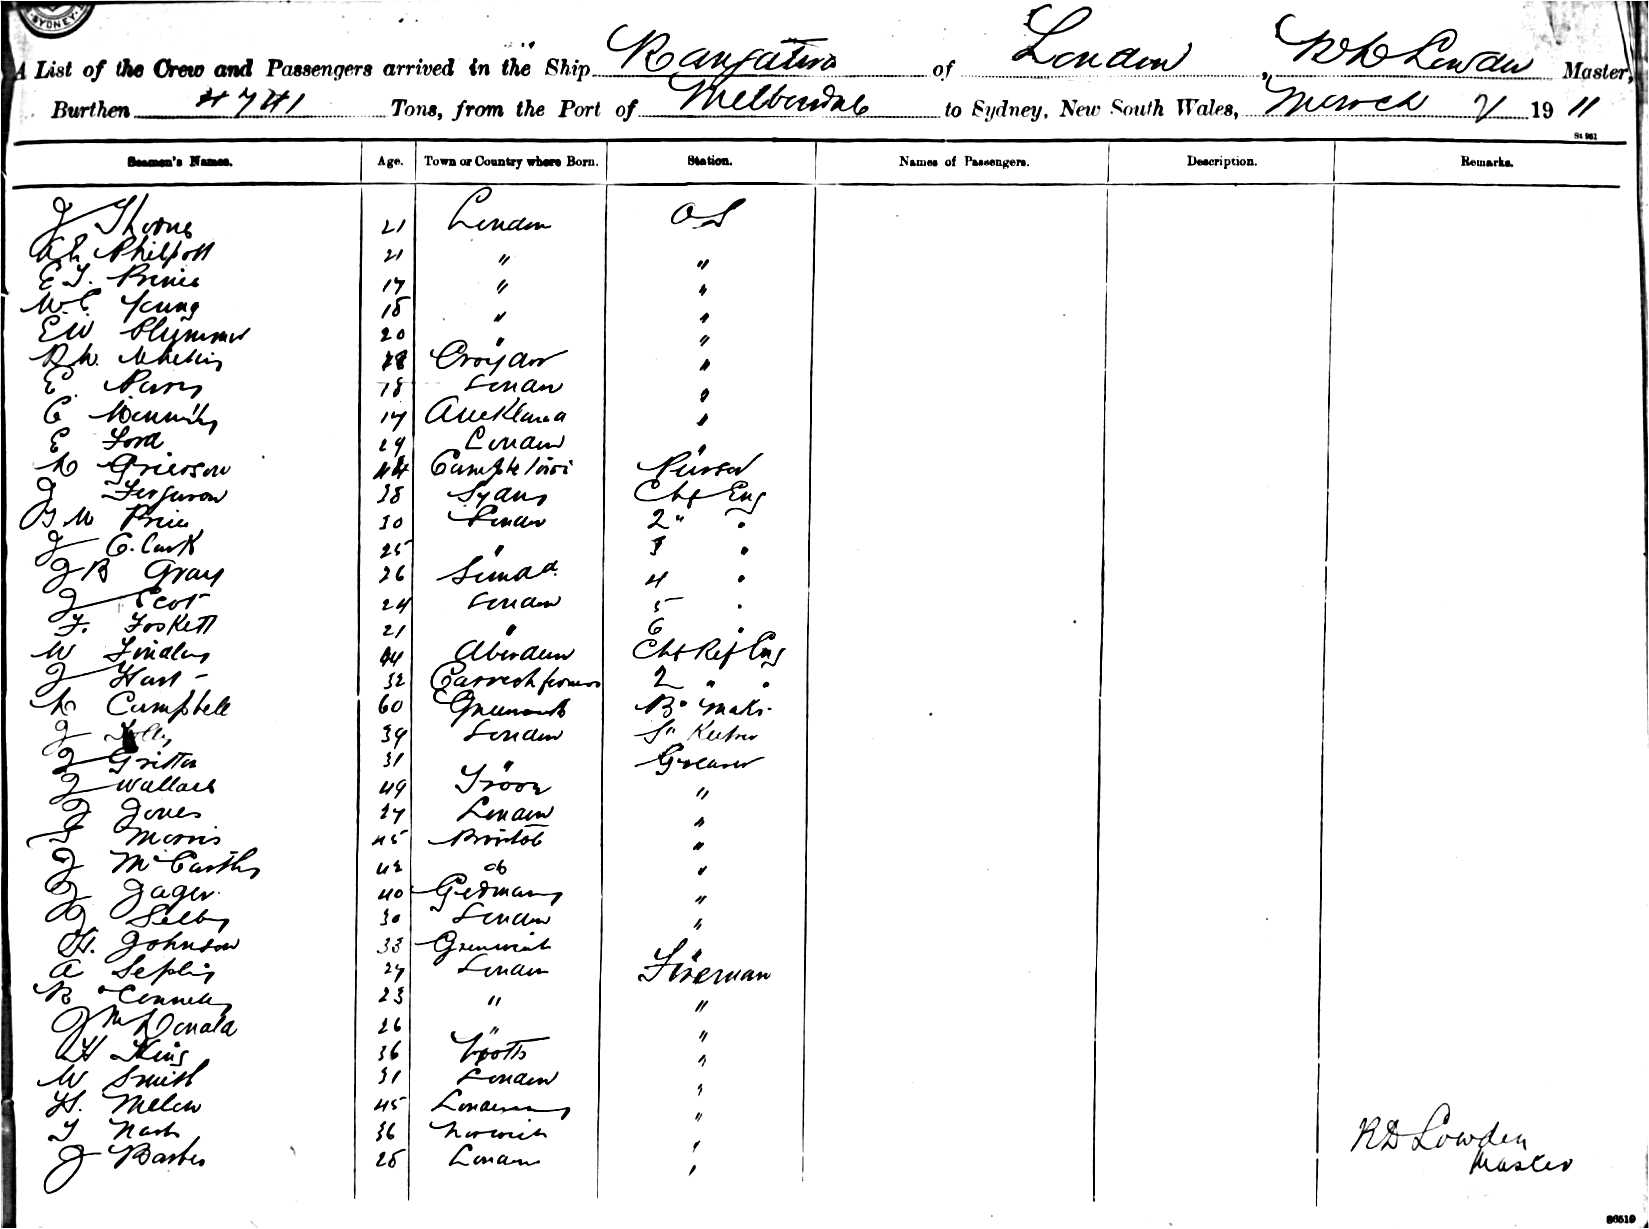 SYDNEY
A List of the Crew and Passengers arrived in the Ship Rangatira of London, R D Lowden Master,
Burthen 4741 Tons, from the Port of Melbourne to Sydney, New South Wales, March 21 1911
St 961
Seamen's Names. Age. Town or Country where Born. Station. Names of Passengers. Description. Remarks.
J Thorne 21 London O S
Philpott 21 " "
E T. Prince 17 " "
W. C. Young 18 " "
E W Plymmer 20 " "
R W. Croydon "
E. 18 London "
C 17 Auckland "
E Ford 29 London "
Grierson 44 Purser
J Ferguson 38 Sydney Chf Eng
Price 30 London 2" "
J C. Cark 25 " 3 "
J B Gray 26 4 "
J Scot 24 London 5 "
F. Foskett 21 " 6 "
W Findlay 44 Aberdeen Chf Ref Eng
J Hart 32 2 " "
Campbell 60 Greenock B. Makr
J 39 London Sr Keeper
J Gritten 31 " Greaser
J Wallace 49 Troon "
J Jones 27 London "
Morris 45 Bristol "
J McCarthy 42 do "
J Jager 40 Germany "
J Selby 30 London "
H. Johnson 33 Greenwich "
A 27 London Fireman
R Connelly 23 " "
J McDonald 26 " "
H King 36 "
W Smith 31 London "
H. 45 "
T Nash 36 Norwich "
J Barber 28 London "
R D Lowden
Master
86519